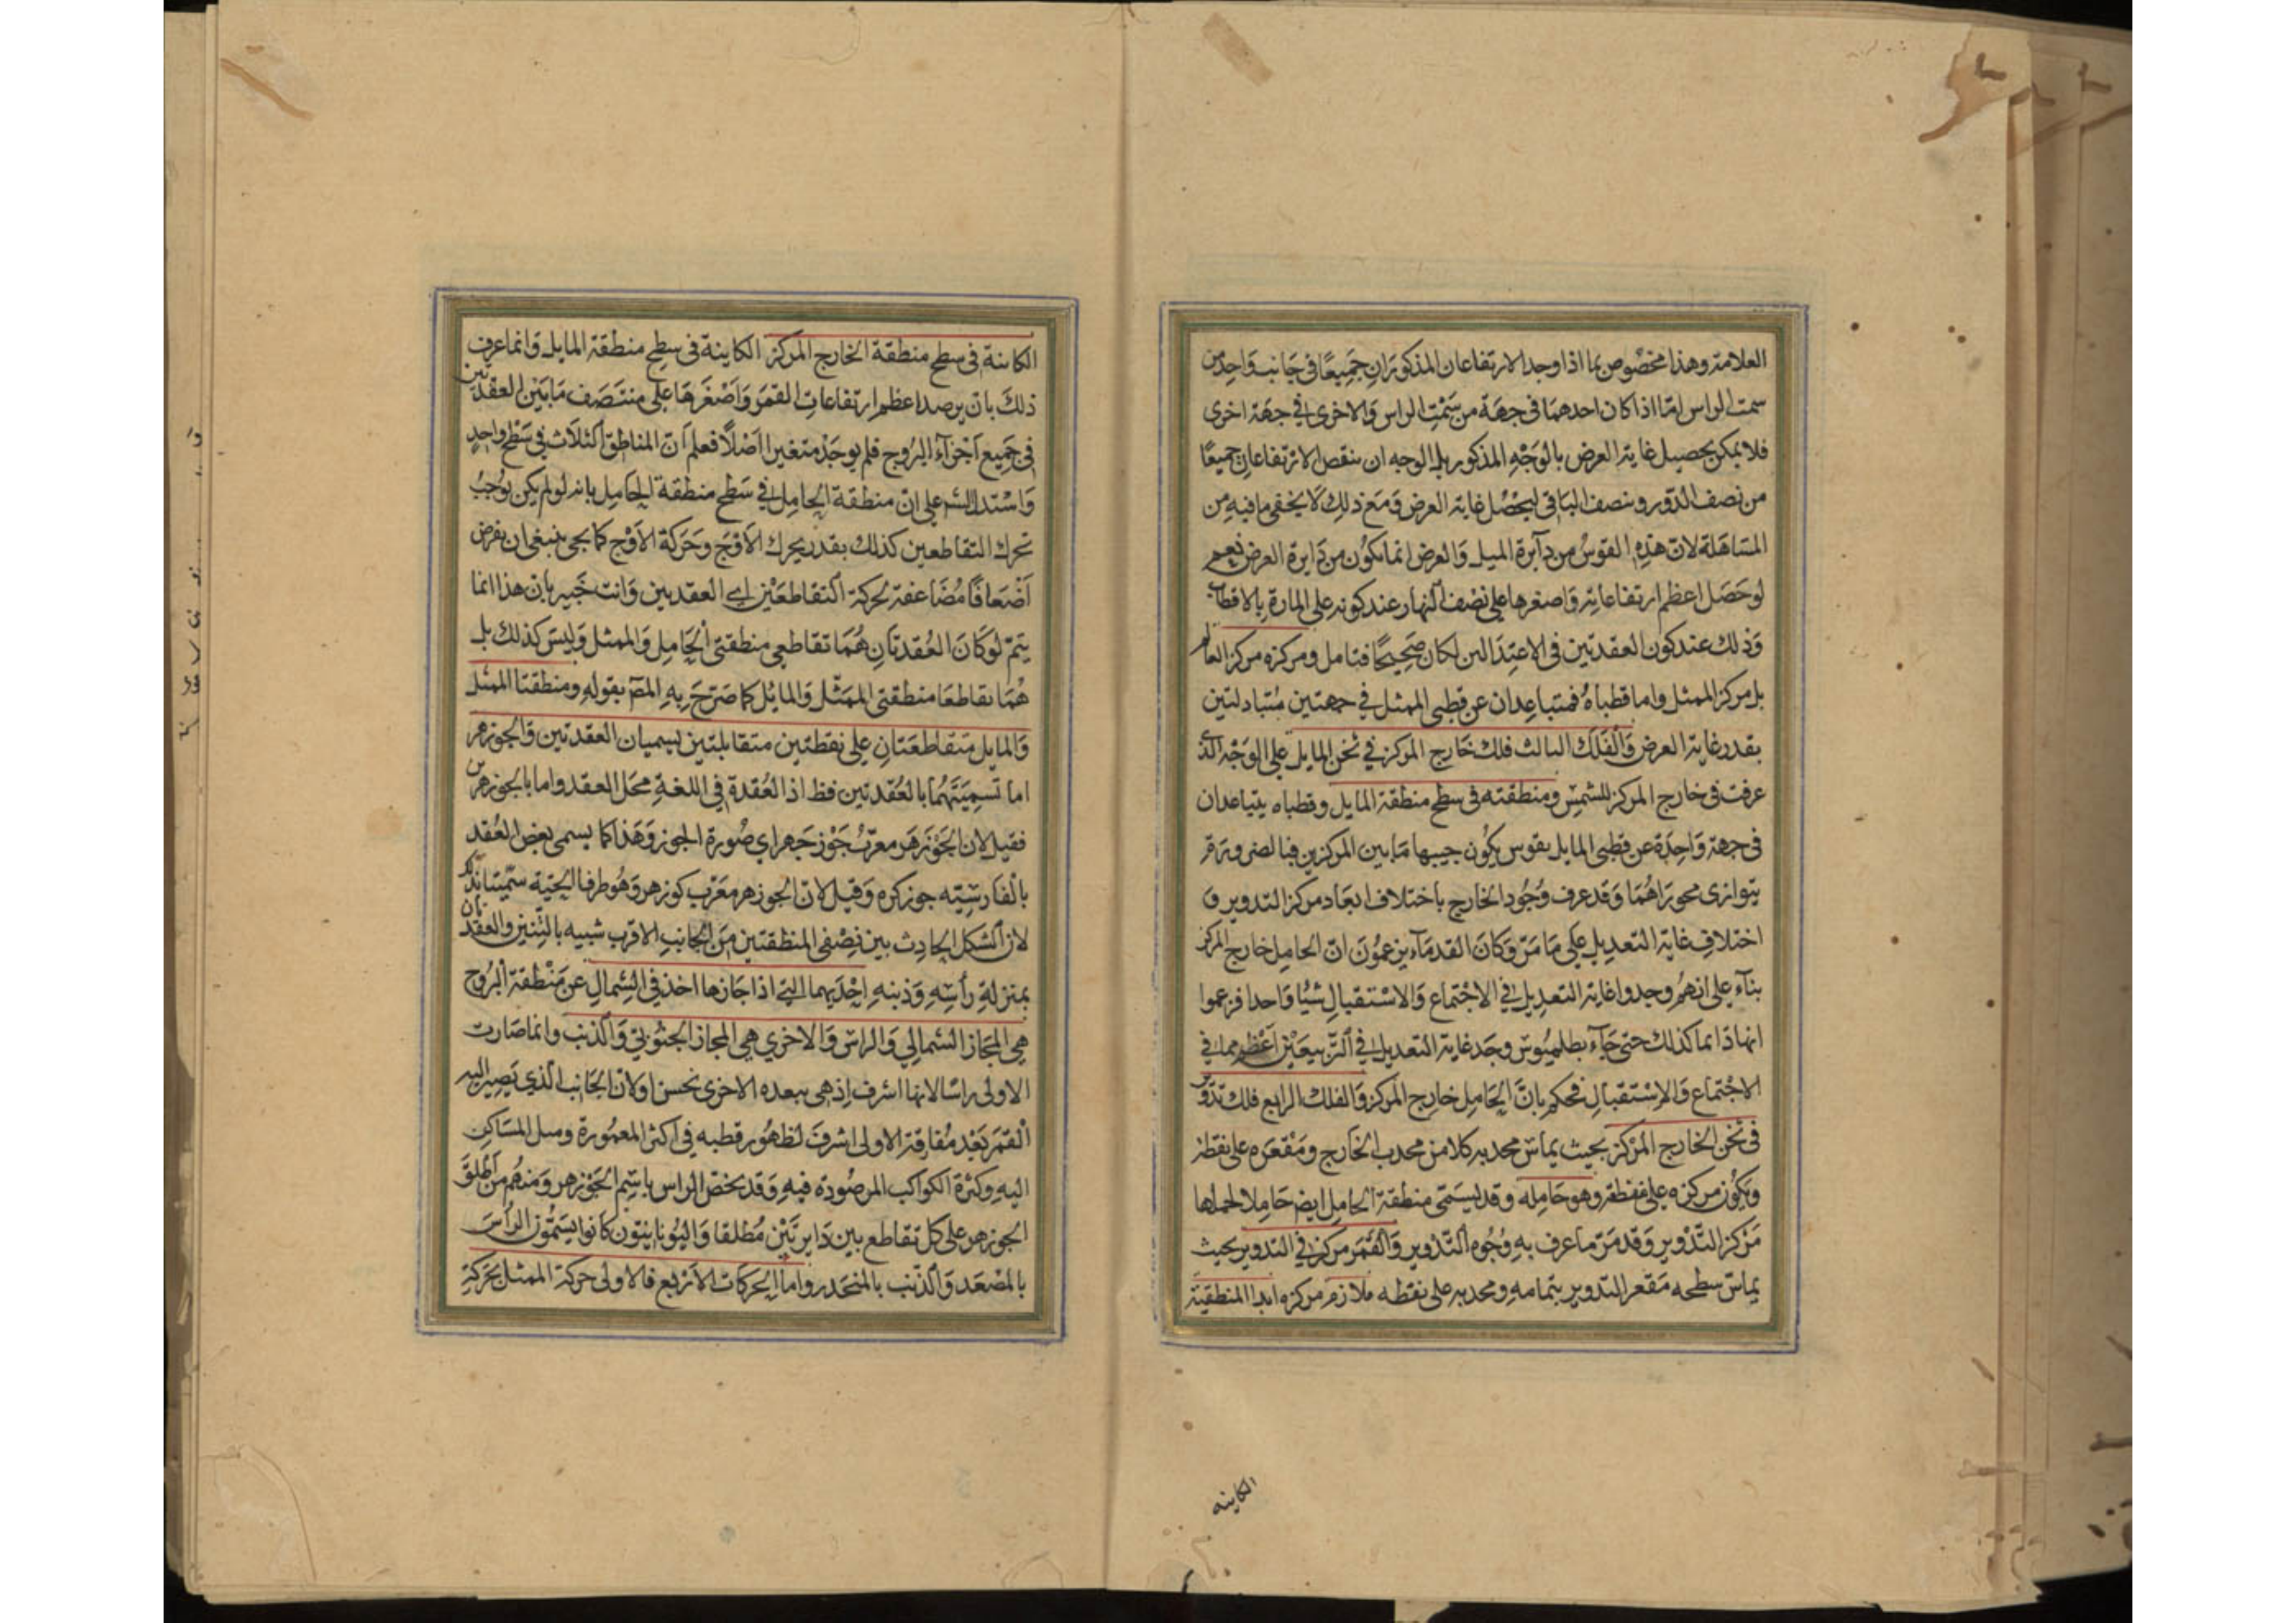 العلامة وهذا مخصوص بما اذا وجد الارتفاعان المذكوران جميعًا فى جانب واحد من
سمت الراس امّا اذا كان احدهما فى جهة من سَمْتِ الراس وَالاخرى فى جهة اخرى
فلا يمكن تحصيل غاية العرض بالوَجْهِ المذكور بل الوجه ان ينقص الارتفاعان جميعًا
من نصف الدّور وينصف الباقى ليحْصُل غاية العرض وَمَع ذلِكَ لا يخفى ما فيه من
المسَاهَلة لانّ هذهِ القوسُ من دآئرة الميل وَالعرض انما يكوُن من دَايرة العرض نعم
لو حَصَل اعظم ارتفاعاته وَاصغرها على نصْف النهار عند كونه على المارة بالاقطاب
وَذلك عند كون العقدتين فى الاعتِدَالين لكان صَحِيحًا فتامل ومركزه مركز العالم
بل مركز الممثل واما قطباهُ فمتباعِدان عن قطبى الممثل فى جهتين مُتبادلتين
بقدر غاية العرض وَالفلَك الثالث فلك خَارج المركز فى ثخن المايل على الوَجْه الذى
عرفت فى خارج المركز للشمس ومنطقته فى سطح منطقة المايل وقطباه يتباعدان
فى جهة وَاحِدَة عن قطبى المايل بقوس يكوُن جيبها مَا بين المركزين فبالضرورة
يتوازى محورَاهُمَا وَقَد عرف وُجُود الخارج باختلاف ابعَاد مركز التدوير وَ
اختلافِ غاية التعديل عَلى مَا مَرّ وَكانَ القدمَآء يزعمُونَ انّ الحامل خارج المركز
بناء على انهُم وجدوا غاية التعديل فى الاجْتماع وَالاسْتقبالِ شيئًا وَاحدا فزعموا
انها دَائما كذلك حتى جَآء بطلميُوس وجَد غاية التعديل فى التّربيعَيْن اعْظم مما فى
الاجْتماع وَالاِسْتقبالِ فحكم بانَّ الحَامِل خارج المركز وَالفلك الرابع فلك تدوير
فى ثخن الخارج المرْكز بحيث يماسّ محدبه كلا من محدب الخَارج ومَقْعَره على نقطة
وَيكوُن مركزه على منطقته وهو حَامِله وقد يسَمّى منطقة الحامل ايضًا حَامِلا لحملها
مَرْكز التّدْويرِ وَقد مَرّ ما عرف بهِ وُجُوه التّدْوير وَالقمَر مركز فى التدوير بحيث
يماسّ سطحه مَقعر التدوير بتمامهِ ومحدبه على نقطه ملازم مركزه ابدا المنطقة
الكاينه
الكاينة فى سطح منطقة الخارج المركز الكاينة فى سطح منطقة المايل وَانما عرف
ذلكَ بان يرصد اعظم ارتفاعاتِ القمَر وَاصْغَرهَا على منتَصَف مَا بَيْن العقدتين
فى جَميع اَجْزآء البُروج فلم يوجَدْ متغيرا اَصْلاً فعلم اَنّ المناطق الثلاث فى سَطْح واحدٍ
وَاسْتدل الش على انّ منطقة الحامل فى سَطح منطقة الحَامِل بانه لو لم يكن يوجبُ
تحرك التقاطعين كذلك بقدر يحرك الاوْج وَحَركة الاوْج كما يجى ينبغى ان يفرض
اَضْعَافًا مُضَاعفة لحركة التقاطعَيْن اى العقدتين وَانت خَبير بانّ هذا انما
يَتمّ لوكَانَ العُقدتَانِ هُمَا تقاطعى منطقتى الحَامِل وَالممثل وَليسَ كذلك بل
هُمَا تقاطعَا منطقتى الممَثّل وَالمايُل كما صَرّحَ بِهِ المص بقولهِ ومنطقتا الممثل
وَالمايل متقاطعَتانِ على نقطتين متقابلتين يسميان العقدتين وَالجوزهر
اما تَسمِيَتَهُمَا بالعُقدتين فظ اذ العُقدة فى اللغةِ محَل العقد واما بالجوزهر
فقيل لان الجَوْزَهَر معرّبُ جَوْزجَهر اي صُورة الجوز وَهَذَا كما يسمى بعضُ العُقد
بالفارسيّه جوزكره وَقيل لانّ الجوزهر معَرّب كوزهر وَهُو طرفا الحيّة سمّيتا بذلك
لان الشكل الحادث بين نِصْفى المنطقتين مِنَ الجانبِ الاقرب شبيه بالتِّنين والعقدتان
بمنزلةِ رأسِهِ وَذنبهِ اِحْدَيهما التى اذا جَازها اخذ فى الشمال عن مَنْطقة البُروج
هى المجَاز الشمالي وَالراسَ وَالاخرى هى المجاز الجنوُبى وَالذنب وانما صَارت
الاولى راسًا لانها اشرف اِذ هى سعده الاخرى نحسن اولان الجَانب الذي يَصِير اليه
القمَر بَعْد مُفارقة الاولى اشرف لظهُور قطبه فى اكثر المعمُورة وميل المسَاكن
اليهِ وكثرة الكواكب المرصُودة فيهِ وَقد يخصّ الراس باسْم الجَوْزهر وَمنهُم من اَطلقَ
الجوزهر على كل تقاطع بين دَايرتَيْن مُطلقا وَاليُونانيّون كَانوا يسَمُّون الرأسَ
بالمصْعَد وَالذنب بالمنحَدر واما الحركات الاربع فالاولى حركة الممثل بحركة